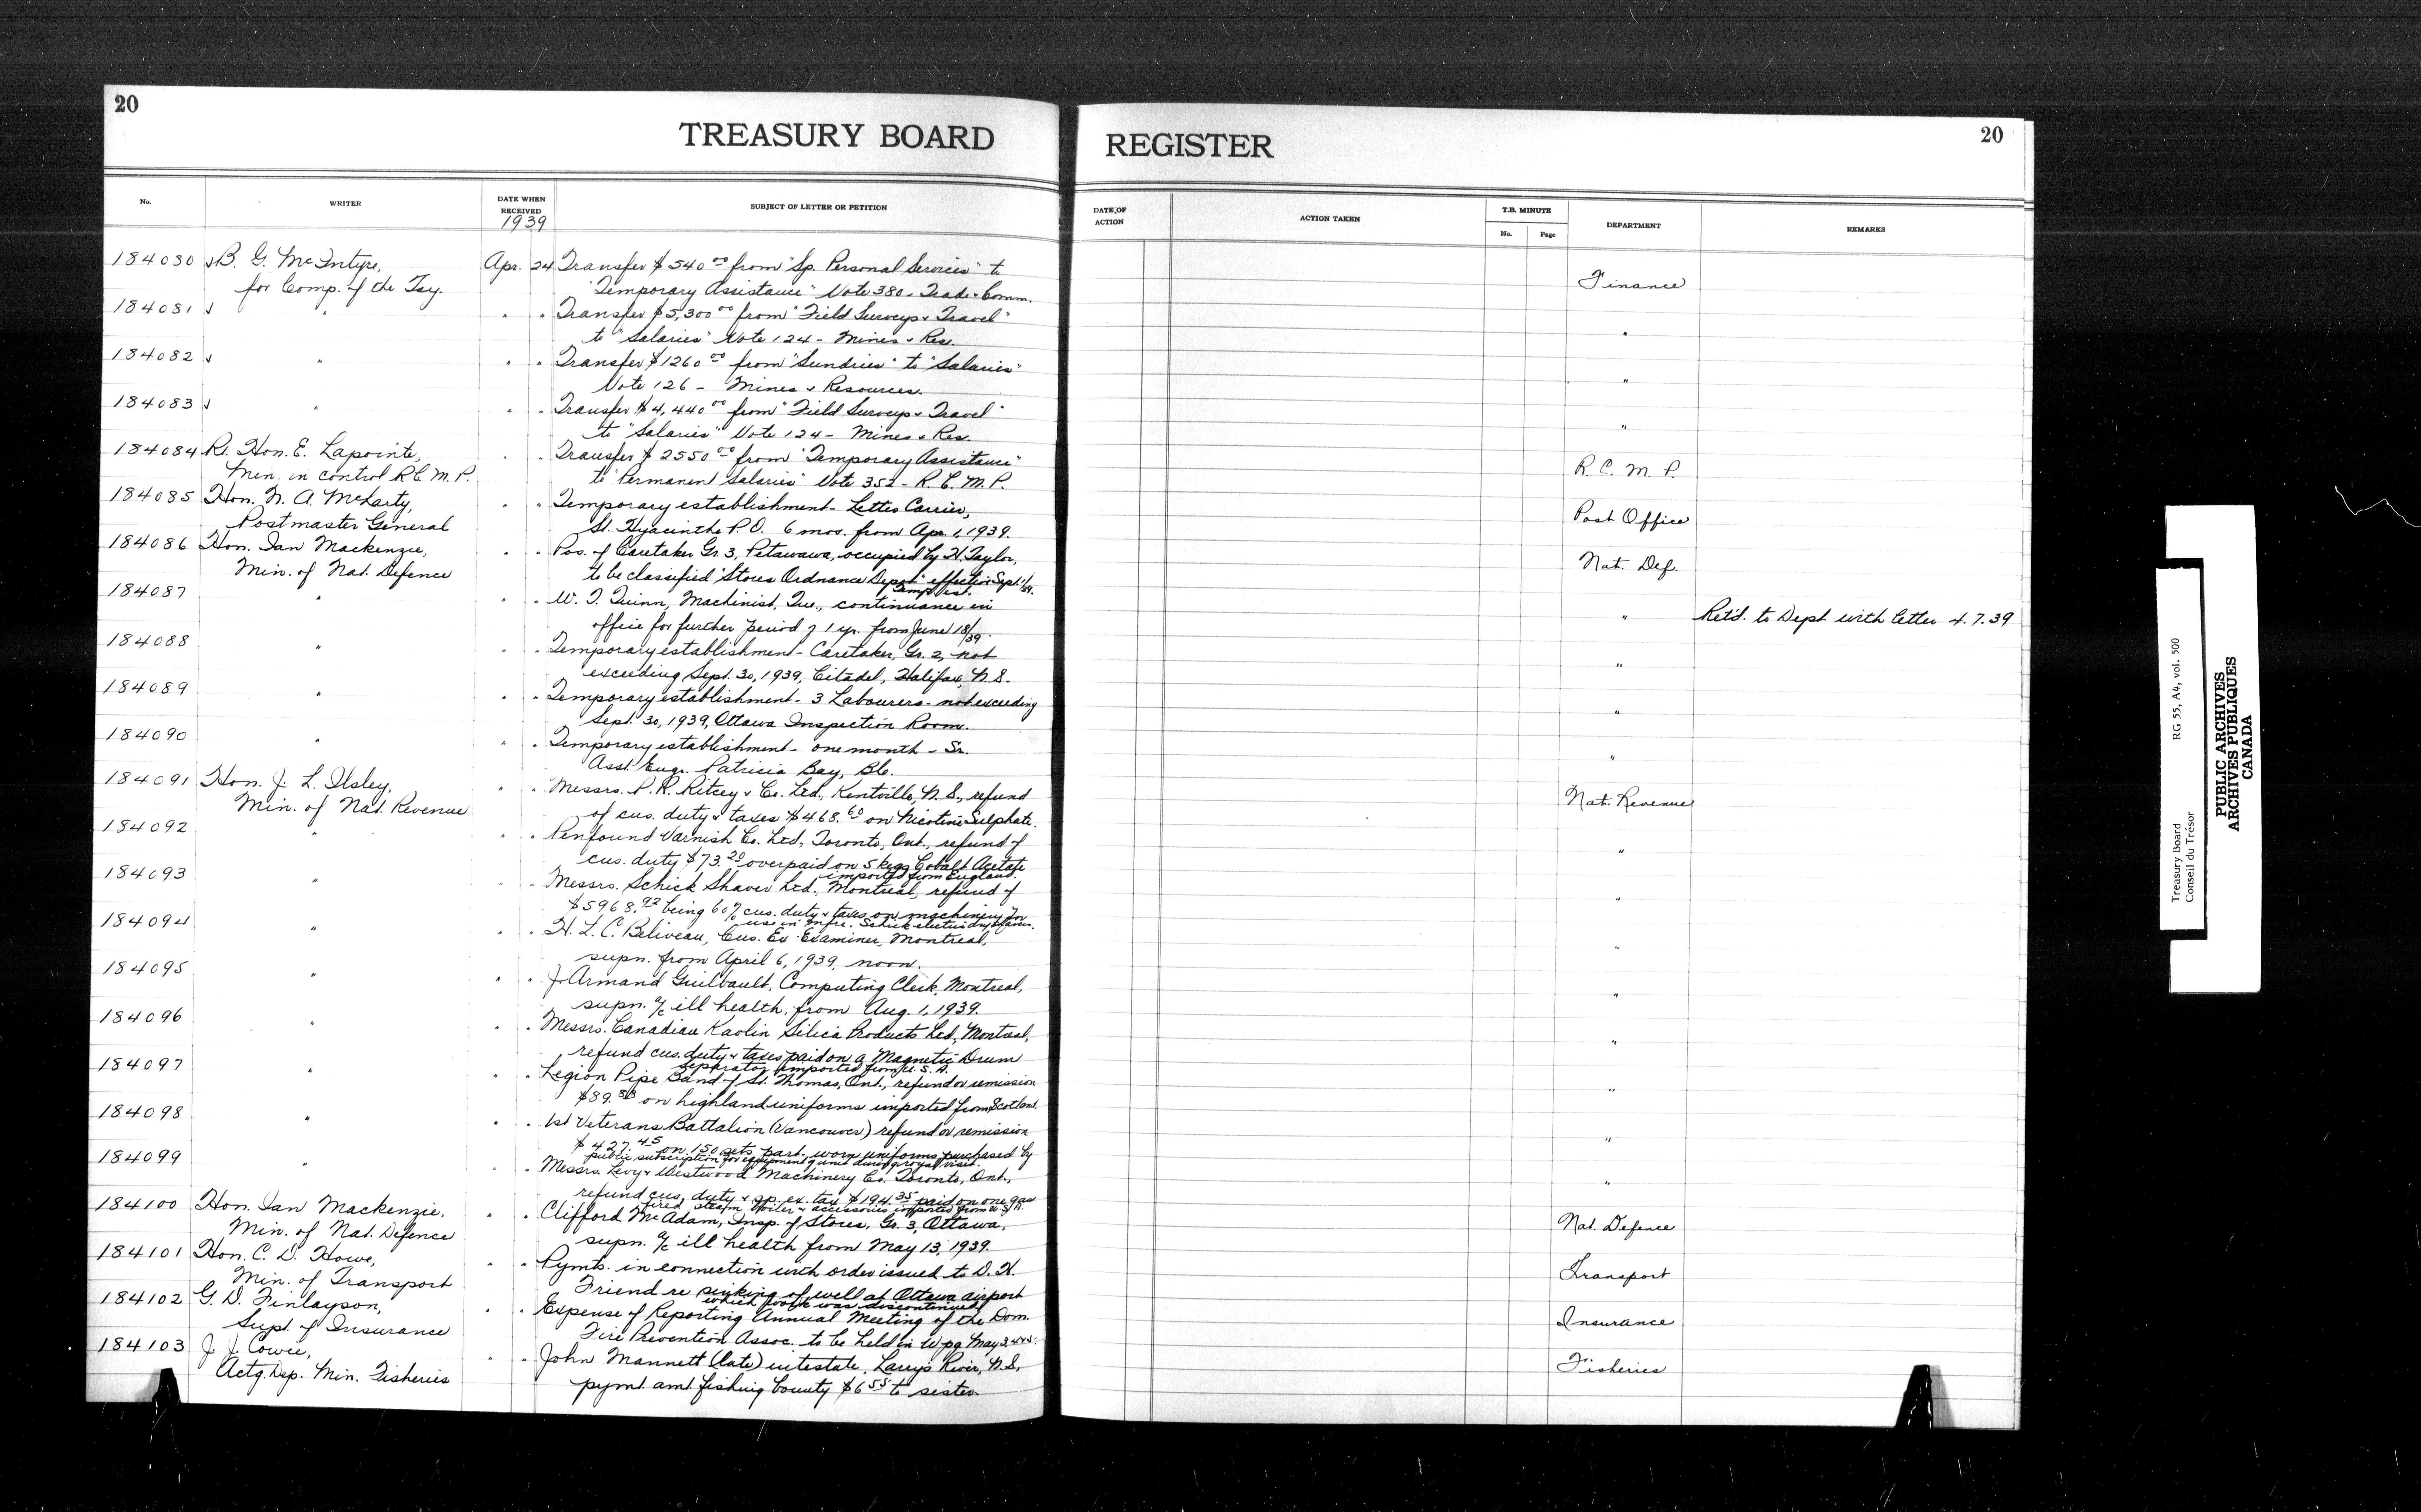 20
TREASURY BOARD
No.
WRITER
DATE WHEN RECEIVED
1939
SUBJECT OF LETTER OR PETITION
184080 B. G. McIntyre, Apr. 24 Transfer $540 00 from "Sp. Personal Services" to
for Comp. of the Tsy. "Temporary Assistance" Vote 380. Trade & Comm.
184081 " " " Transfer $5,300 00 from "Field Surveys & Travel"
to "Salaries" Vote 124 - Mines & Res.
184082 " " " Transfer $1260 00 from "Sundries" to "Salaries"
Vote 126 - Mines & Resources.
184083 " " " Transfer $4,440 00 from "Field Surveys & Travel"
to "Salaries" Vote 124 - Mines & Res.
184084 Rt. Hon. E. Lapointe, " " Transfer $2550 00 from "Temporary Assistance"
Min. in control R.C.M.P. to "Permanent Salaries" Vote 352 - R.C.M.P.
184085 Hon. N. A. McLarty, " " Temporary establishment - Letter Carrier,
Postmaster General St. Hyacinthe P.O. 6 mos. from Apr. 1, 1939.
184086 Hon. Ian Mackenzie, " " Pos. of Caretaker Gr. 3, Petawawa, occupied by H. Taylor,
Min. of Nat. Defence to be classified "Stores Ordnance Depot" effective Sept. 1/39.
Temp. est.
184087 " " " W. T. Quinn, Machinist, Que., continuance in
office for further period of 1 yr. from June 18/39.
184088 " " " Temporary establishment - Caretaker, Gr. 2, not
exceeding Sept. 30, 1939, Citadel, Halifax, N.S.
184089 " " " Temporary establishment - 3 Labourers - not exceeding
Sept. 30, 1939, Ottawa Inspection Room.
184090 " " " Temporary establishment - one month - Sr.
Asst. Engr. Patricia Bay, B.C.
184091 Hon. J. L. Ilsley, " " Messrs. P. R. Ritcey & Co. Ltd., Kentville, N.S., refund
Min. of Nat. Revenue of cus. duty & taxes $468.60 on Nicotine Sulphate.
184092 " " " Penfound Varnish Co. Ltd., Toronto, Ont., refund of
cus. duty $73.20 overpaid on 5 kegs Cobalt Acetate
imported from England.
184093 " " " Messrs. Schick Shaver Ltd., Montreal, refund of
$5968.92 being 60% cus. duty & taxes on machinery for
use in mfre. Schick electric dry shavers.
184094 " " " H. L. C. Beliveau, Cus. Ex. Examiner, Montreal,
supn. from April 6, 1939, noon.
184095 " " " J. Armand Guilbault, Computing Clerk, Montreal,
supn. a/c ill health, from Aug. 1, 1939.
184096 " " " Messrs. Canadian Kaolin Silica Products Ltd., Montreal,
refund cus. duty & taxes paid on a Magnetic Drum
separator imported from U.S.A.
184097 " " " Legion Pipe Band of St. Thomas, Ont., refund or remission
$89.88 on highland uniforms imported from Scotland.
184098 " " " 1st Veterans Battalion (Vancouver) refund or remission
$427.45 on 150 sets part-worn uniforms purchased by
public subscription for equipment of unit during royal visit.
184099 " " " Messrs. Levy & Westwood Machinery Co. Toronto, Ont.,
refund cus. duty & sp. ex. tax $194.35 paid on one gas
fired steam boiler & accessories imported from U.S.A.
184100 Hon. Ian Mackenzie, " " Clifford McAdam, Insp. of Stores, Gr. 3, Ottawa,
Min. of Nat. Defence supn. a/c ill health from May 13, 1939.
184101 Hon. C. D. Howe, " " Pymts. in connection with order issued to D. H.
Min. of Transport Friend re sinking of well at Ottawa airport
which work was discontinued
184102 G. D. Finlayson, " " Expense of Reporting Annual Meeting of the Dom.
Supt. of Insurance Fire Prevention Assoc. to be held in Wpg May
184103 J. J. Cowie, " " John Mannett (late) intestate, Larrys River, N.S.,
Actg. Dep. Min. Fisheries pymt. amt. fishing bounty $6 55 to sister.
REGISTER
20
DATE OF ACTION
ACTION TAKEN
T.B. MINUTE
No.
Page
DEPARTMENT
REMARKS
Finance
"
"
"
R. C. M. P.
Post Office
Nat. Def.
" Ret'd. to Dept with letter 4.7.39
"
"
"
Nat. Revenue
"
"
"
"
"
"
"
"
Nat. Defence
Transport
Insurance
Fisheries
Treasury Board RG 55, A4, vol. 500
Conseil du Trésor
PUBLIC ARCHIVES
ARCHIVES PUBLIQUES
CANADA